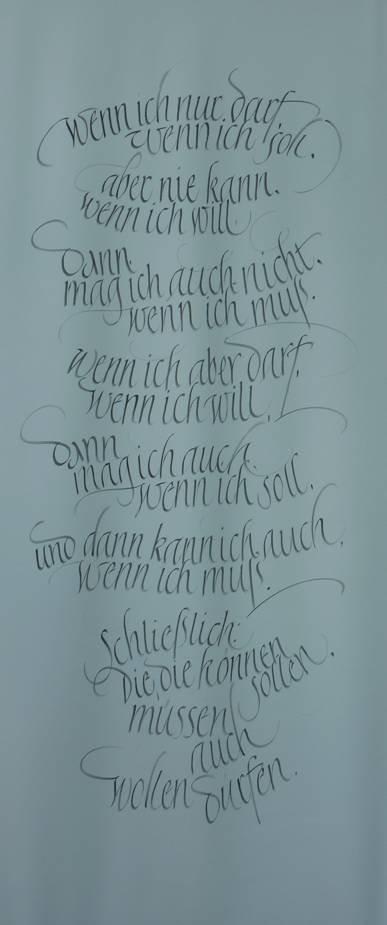 wenn ich nur darf,
wenn ich soll,
aber nie kann,
wenn ich will
Dann
mag ich auch nicht,
wenn ich muß.
wenn ich aber darf,
wenn ich will,
dann
mag ich auch,
wenn ich soll,
und dann kann ich auch,
wenn ich muß.
Schließlich:
Die, die können
sollen,
müssen
auch
wollen dürfen.